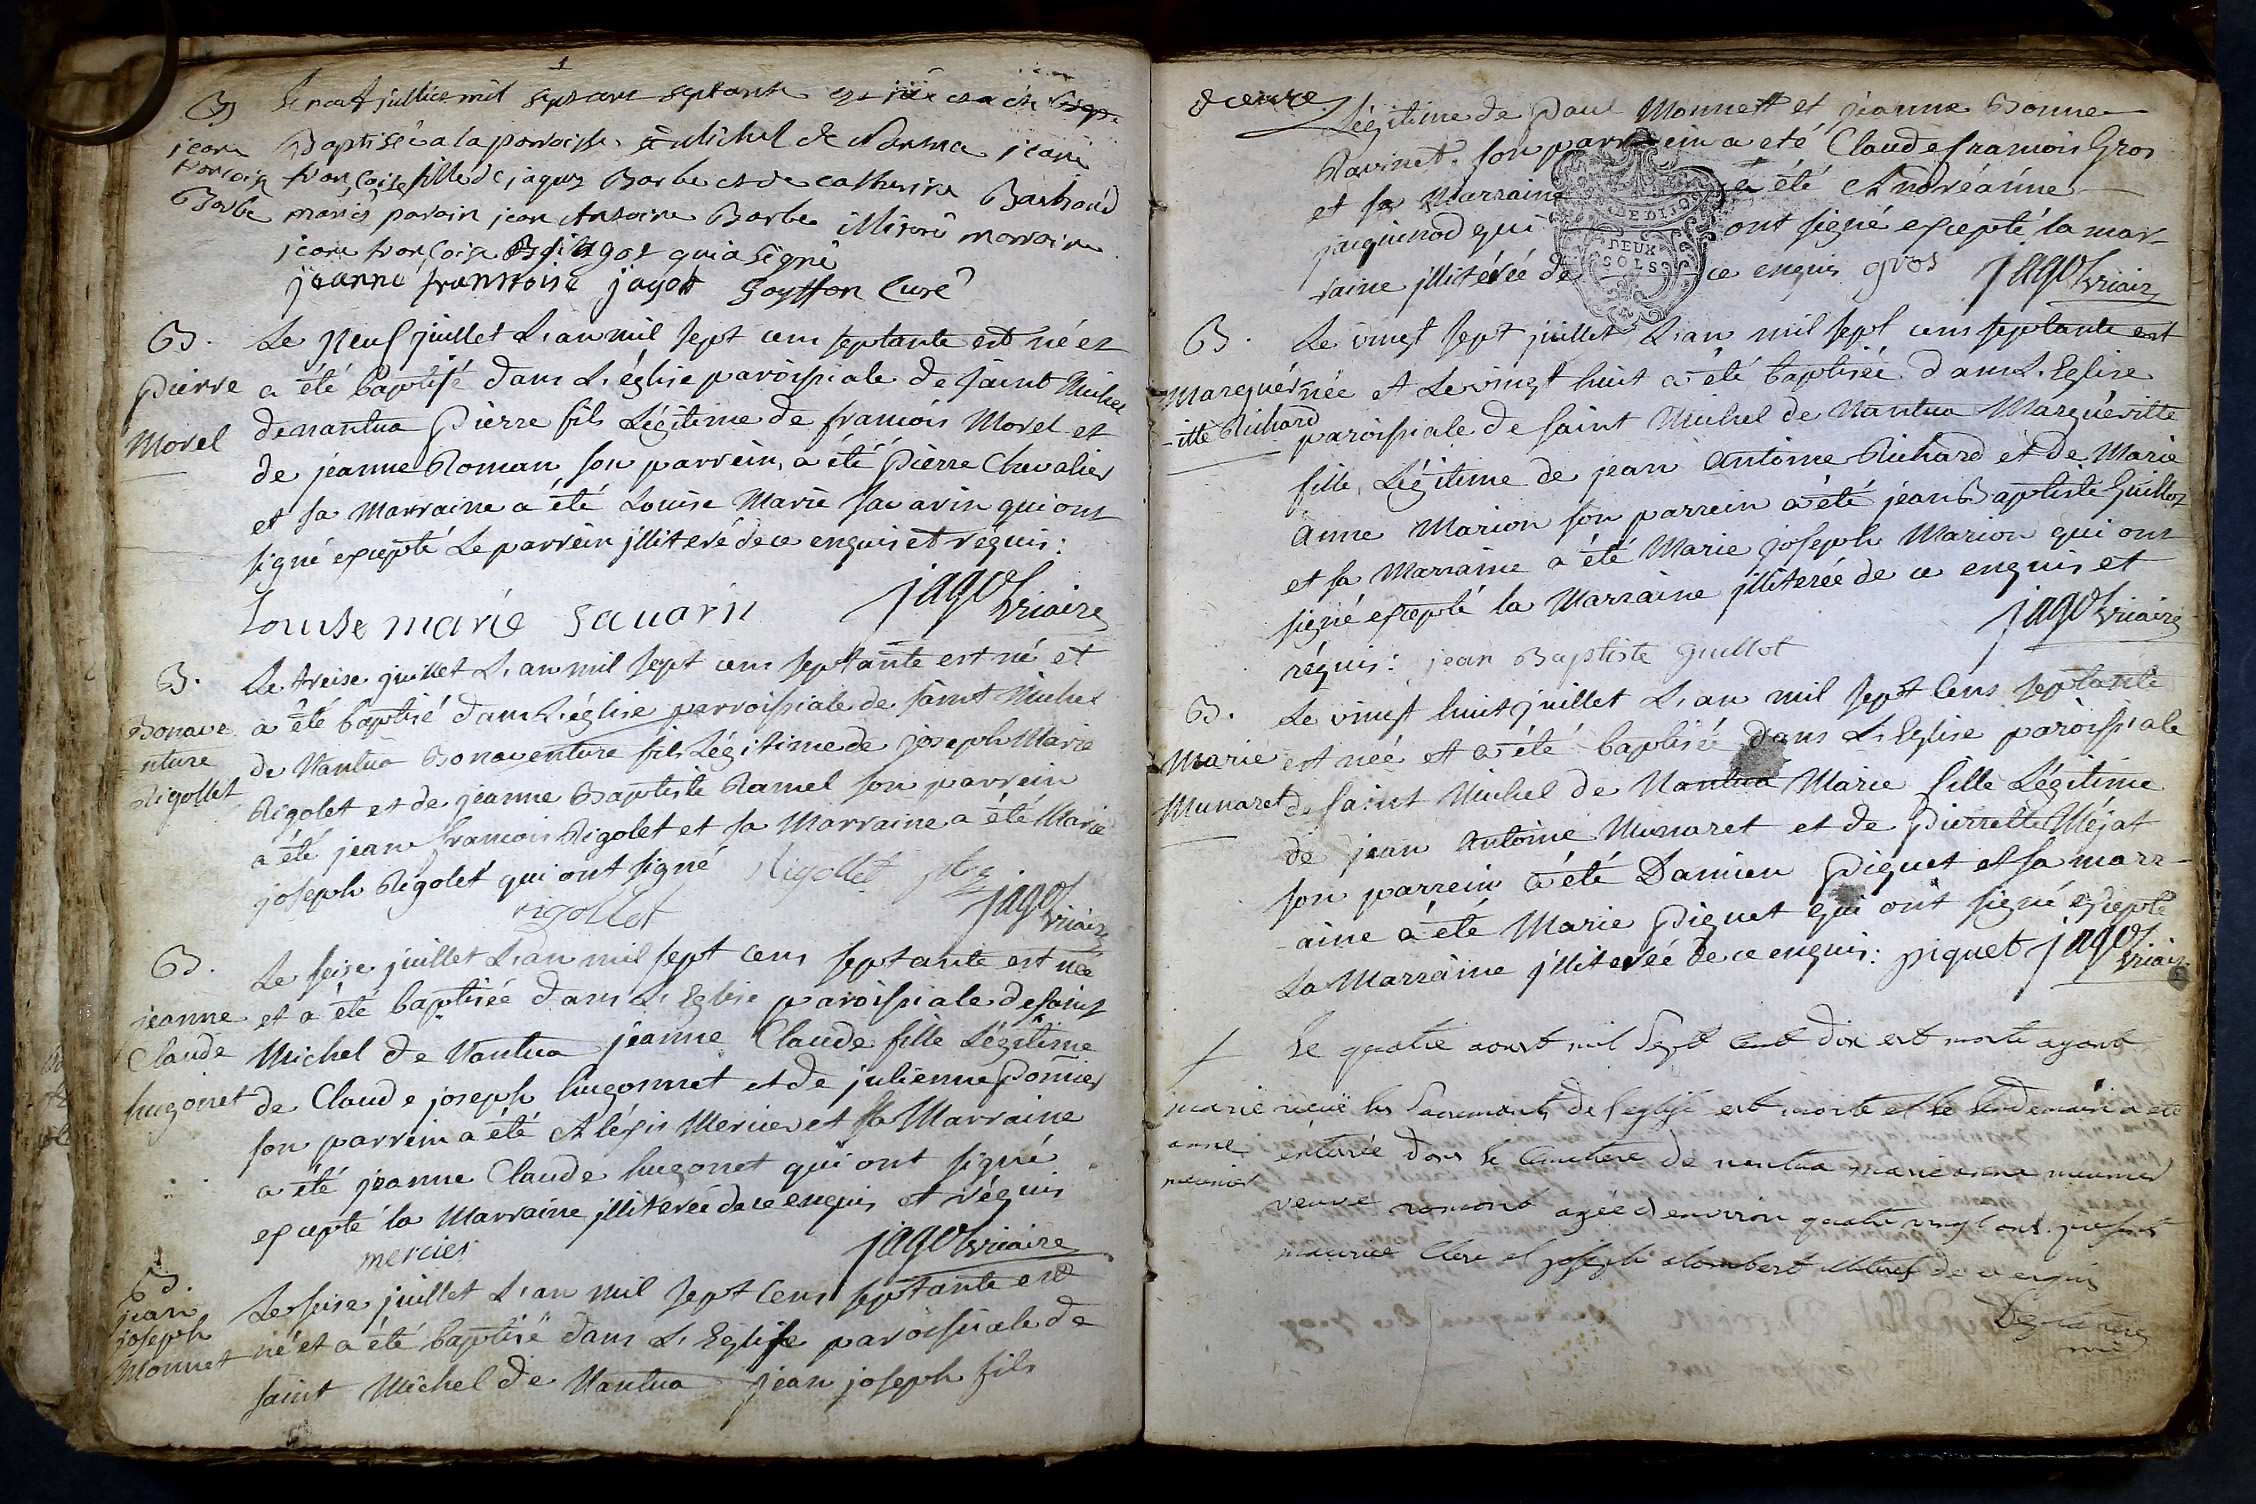 1
B
jeane
francoise
Barbe
Le neuf juillet mil sept cent septante est née et a été
Baptisé a la parroisse st Michel de Nantua jeane
francoise fille de jaques Barbe et de catherine
mariés parain jean Antoine Barbe illiteré marraine
jeane francoise qui a signé
jeanne franssoise jagot Goyffon Curé
B.
pierre
Morel
Le Neuf juillet L'an mil sept cens septante est né et
a été baptisé dans L'église paroissiale de saint Michel
de nantua pierre fils Légitime de francois Morel et
de jeanne Roman son parrein, a été pierre Chevalier
et sa Marraine a été Louise Marie savarin qui ont
signé excepté Le parrein jlliteré de ce enquis et réquis:
Louise marie savarin jagot vicaire
B.
Bonave
nture
Rigollet
Le treise juillet L'an mil sept cens septante est né et
a été baptisé dans L'église parroissiale de saint Michel
de Nantua Bonaventure fils Légitime de joseph Marie
Rigolet et de jeanne Baptiste Ramel son parrein
a été jean francois Rigolet et sa Marraine a été Marie
joseph Rigolet qui ont signé Rigollet
rigollet jagot vicaire
B.
jeanne
Claude
hugonet
Le seise juillet L'an mil sept cens septante est née
et a été baptisée dans L'Eglise paroissiale de saint
Michel de Nantua jeanne Claude fille Légitime
de Claude joseph hugonnet et de julienne pomier
son parrein a été Aléxis Mercier et sa Marraine
a été jeanne Claude hugonet qui ont signé
excepté la Marraine jlliterée de ce enquis et réquis
mercier jagot vicaire
B.
jean
joseph
Monnet
Le seise juillet L'an mil sept Cens septante est
né et a été baptisé dans L'Eglise paroissiale de
saint Michel de Nantua jean joseph fils
Légitime de paul Monnet et jeanne Bonne
Ravinet. son parrein a eté Claude francois Gros
et sa Marraine a été Andréanne
jaquinod qui ont signé excepté la mar-
raine jlliterée de ce enquis gros jagot vicaire
DEUX
SOLS
B.
Marguér
-itte Richard
Le vingt sept juillet L'an mil sept cens septante est
née et Le vingt huit a été baptisée dans L'Eglise
paroissiale de saint Michel de Nantua Marguéritte
fille, Légitime de jean Antoine Richard et de Marie
Anne Marion son parrein a été jean Baptiste Guillot
et sa Marraine a été Marie joseph Marion qui ont
signé excepté la Marraine jlliterée de ce enquis et
réquis: jean Baptiste guillot jagot vicaire
B.
Marie
Munaret
Le vingt huit juillet L'an mil sept Cens septante
est née et a été baptisée dans L'Eglise paroissiale
de saint Michel de Nantua Marie fille Légitime
de jean Antoine Munaret et de pierrette Méjat
son parrein a été Damien piquet et sa marr-
aine a été Marie piquet qui ont signé excepté
La Marraine jlliterée de ce enquis: piquet jagot vicaire
+
marie
anne
meunier
Le quatre aoust mil sept cent dix est morte ayant
reçu les sacrements de l'eglise est morte et le lendemain a eté
enterée dans le cimetiere de nantua marie anne meunier
veuve romand agée d'environ quatre vingt ans presents
maurice Clere et joseph illiteres de ce enquis